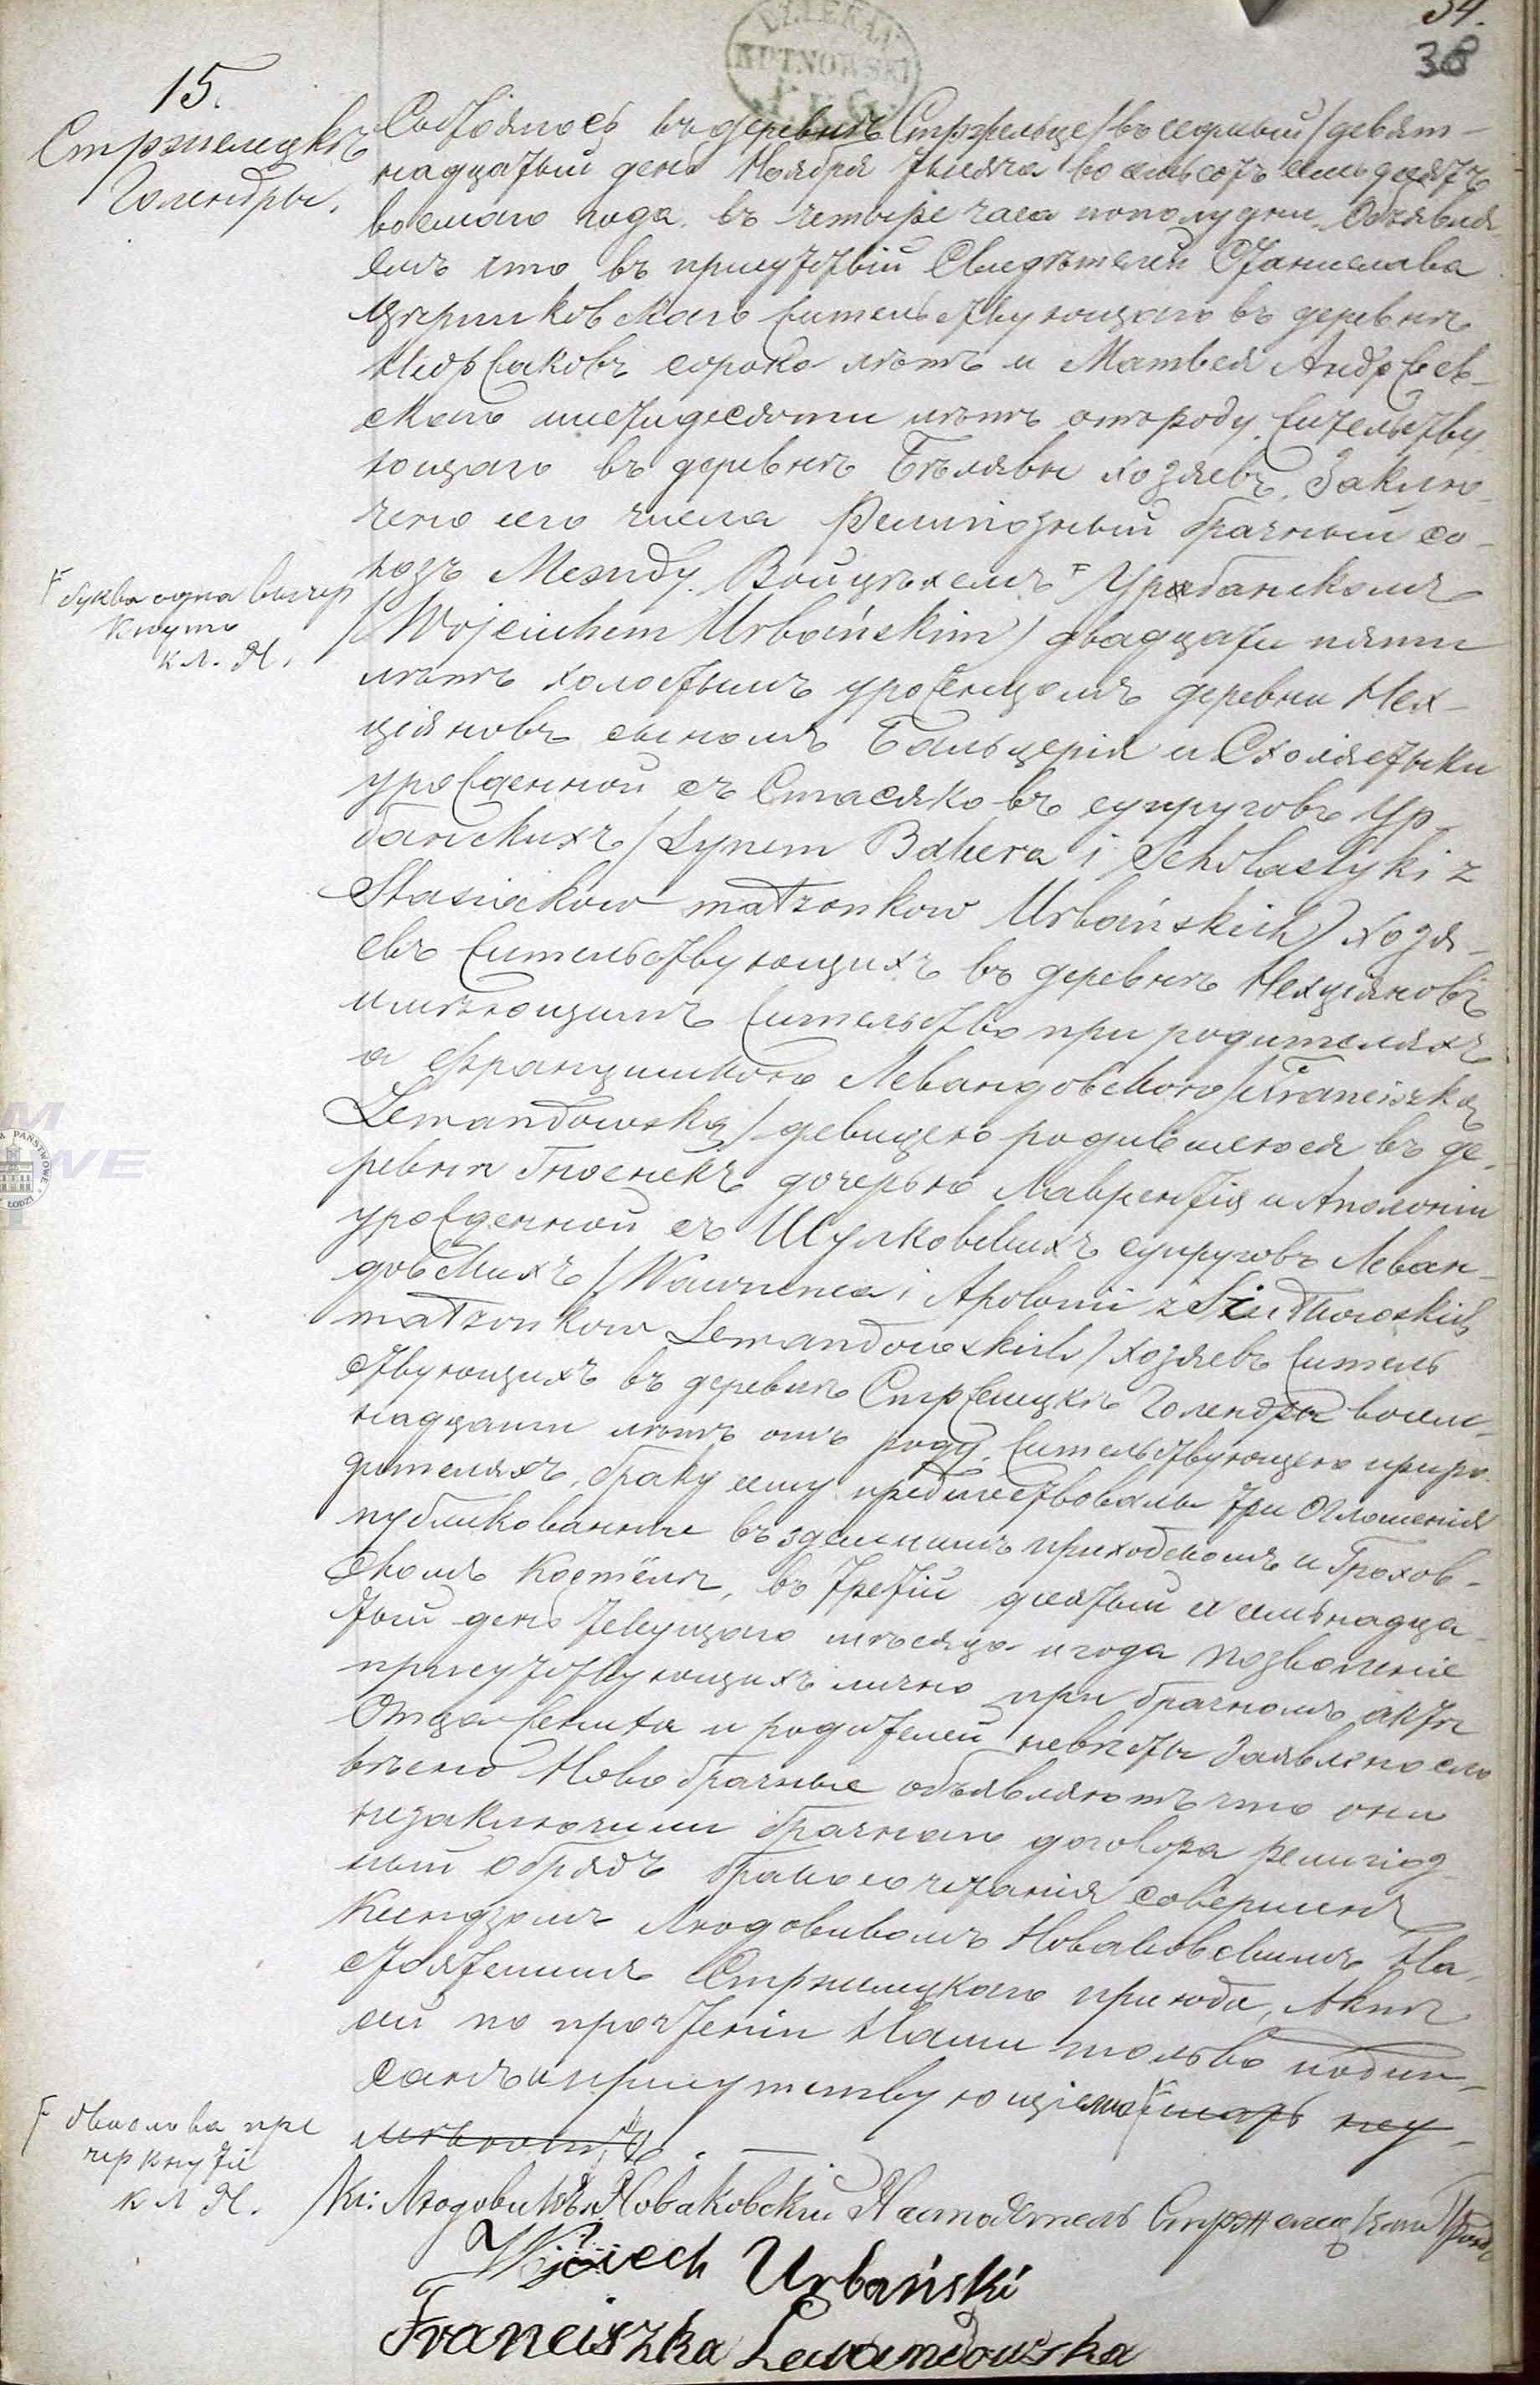 34.
38
DZIEKAN
KUTNOWSKI
15.
Стржелецкъ
Голендры.
Состоялось въ деревнѣ Стржельце /въ седмый/ девят-
надцатый день Ноября тысяча восемьсотъ семьдесятъ
восьмаго года въ четыре часа пополудни. Объявля-
емъ что въ присутствіи Свидѣтелей Станислава
жительствующаго въ деревнѣ
сорока лѣтъ и Матвея Андржеев-
скаго шестидесяти лѣтъ отъ роду жительству-
ющаго въ деревнѣ Бѣлявы хозяевъ, Заклю-
чено сего числа Религіозный брачный со-
юзъ Между Войцѣхемъ F Урбанскомъ
/Wojciechem Urbańskim/ двадцати пяти
лѣтъ холостымъ уроженцомъ деревни Нех-
ціяновъ сыномъ Бальцерія и Схолястыки
урожденной съ Стасяковъ супруговъ Ур-
банскихъ /Synem Balcera i Scholastyki z
Stasiakow małzonkow Urbańskich/ хозя-
евъ жительствующихъ въ деревнѣ Нехціяновъ
имѣющимъ жительство при родителяхъ
а Францишкою Левандовскою /Franciszką
Lewandowską/ девицею родившеюся въ де-
ревнѣ Гносенекъ дочерью Лаврентія и Аполоніи
урожденной съ супруговъ Леван-
довскихъ /Wawrzenca i Apolonii z
małzonkow Lewandowskich/ хозяевъ житель-
ствующихъ въ деревнѣ Стржелецкъ Голендры восем-
надцати лѣтъ отъ роду. жительствующею при ро-
дителяхъ, браку сему предшествовали три Оглошенія
публикованные въ здешнимъ приходскомъ и Грохов-
скомъ костёлѣ, въ третій десятый и семьнадца-
тый день текущаго мѣсяца и года позволеніе
присутствующихъ лично при брачномъ актѣ
Отца жениха и родителей невѣсты заявлено сло-
весно Новобрачные объявляютъ что они
незаключили брачнаго договора религіоз-
ный обрядъ бракосочетанія совершенъ
Ксендзомъ Людовикомъ Новаковскимъ На-
стоятелимъ Стржелецкаго прихода, Актъ
сей по прочтеніи Нами только подпи-
санъ и присутствующіеми F
F буква одна вычер
кнуто
К Л. Н.
F два слова пре
черкнутіе
К Л Н.
Кс: Людовикъ Новаковскій Настоятель Стржелецкаго Прихода
Wojciech Urbański
Franciszka Lewandowska
PAŃSTWOWE
ŁODZI